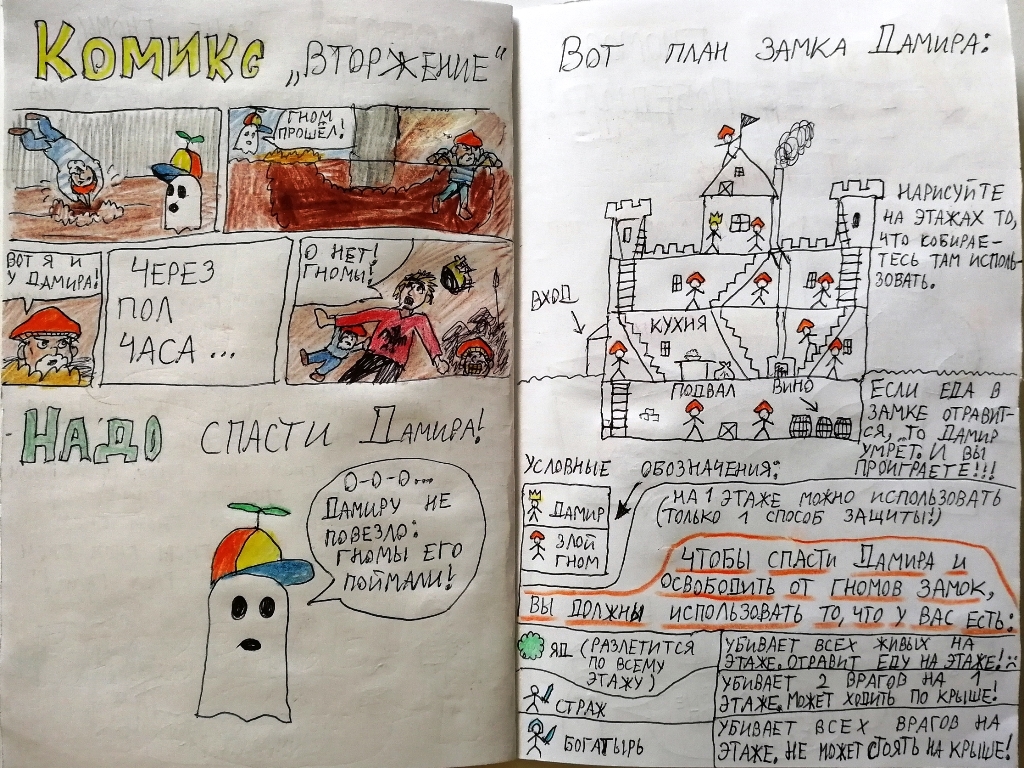 Комикс „Вторжение“
Гном
прошёл!
Вот я и
у Дамира!
Через
пол
часа ...
О нет!
Гномы!
Надо спасти Дамира!
О-о-о...
Дамиру не
повезло:
гномы его
поймали!
Вот план замка Дамира:
Нарисуйте
на этажах то,
что кобирае-
тесь там исполь-
зовать.
Вход
Кухня
Подвал
Вино
Если еда в
замке отравит-
ся, то Дамир
умрёт. И вы
проиграете!!!
Условные обозначения:
Дамир
Злой
гном
На 1 этаже можно использовать
(только 1 способ защиты!)
Чтобы спасти Дамира и
освободить от гномов замок,
вы должны использовать то, что у вас есть:
Яд (разлетится
по всему
этажу)
Убивает всех живых на
этаже. Отравит еду на этаже!
Страж
Убивает 2 врагов на 1
этаже. Может ходить по крыше!
Богатырь
Убивает всех врагов на
этаже. Не может стоять на крыше!